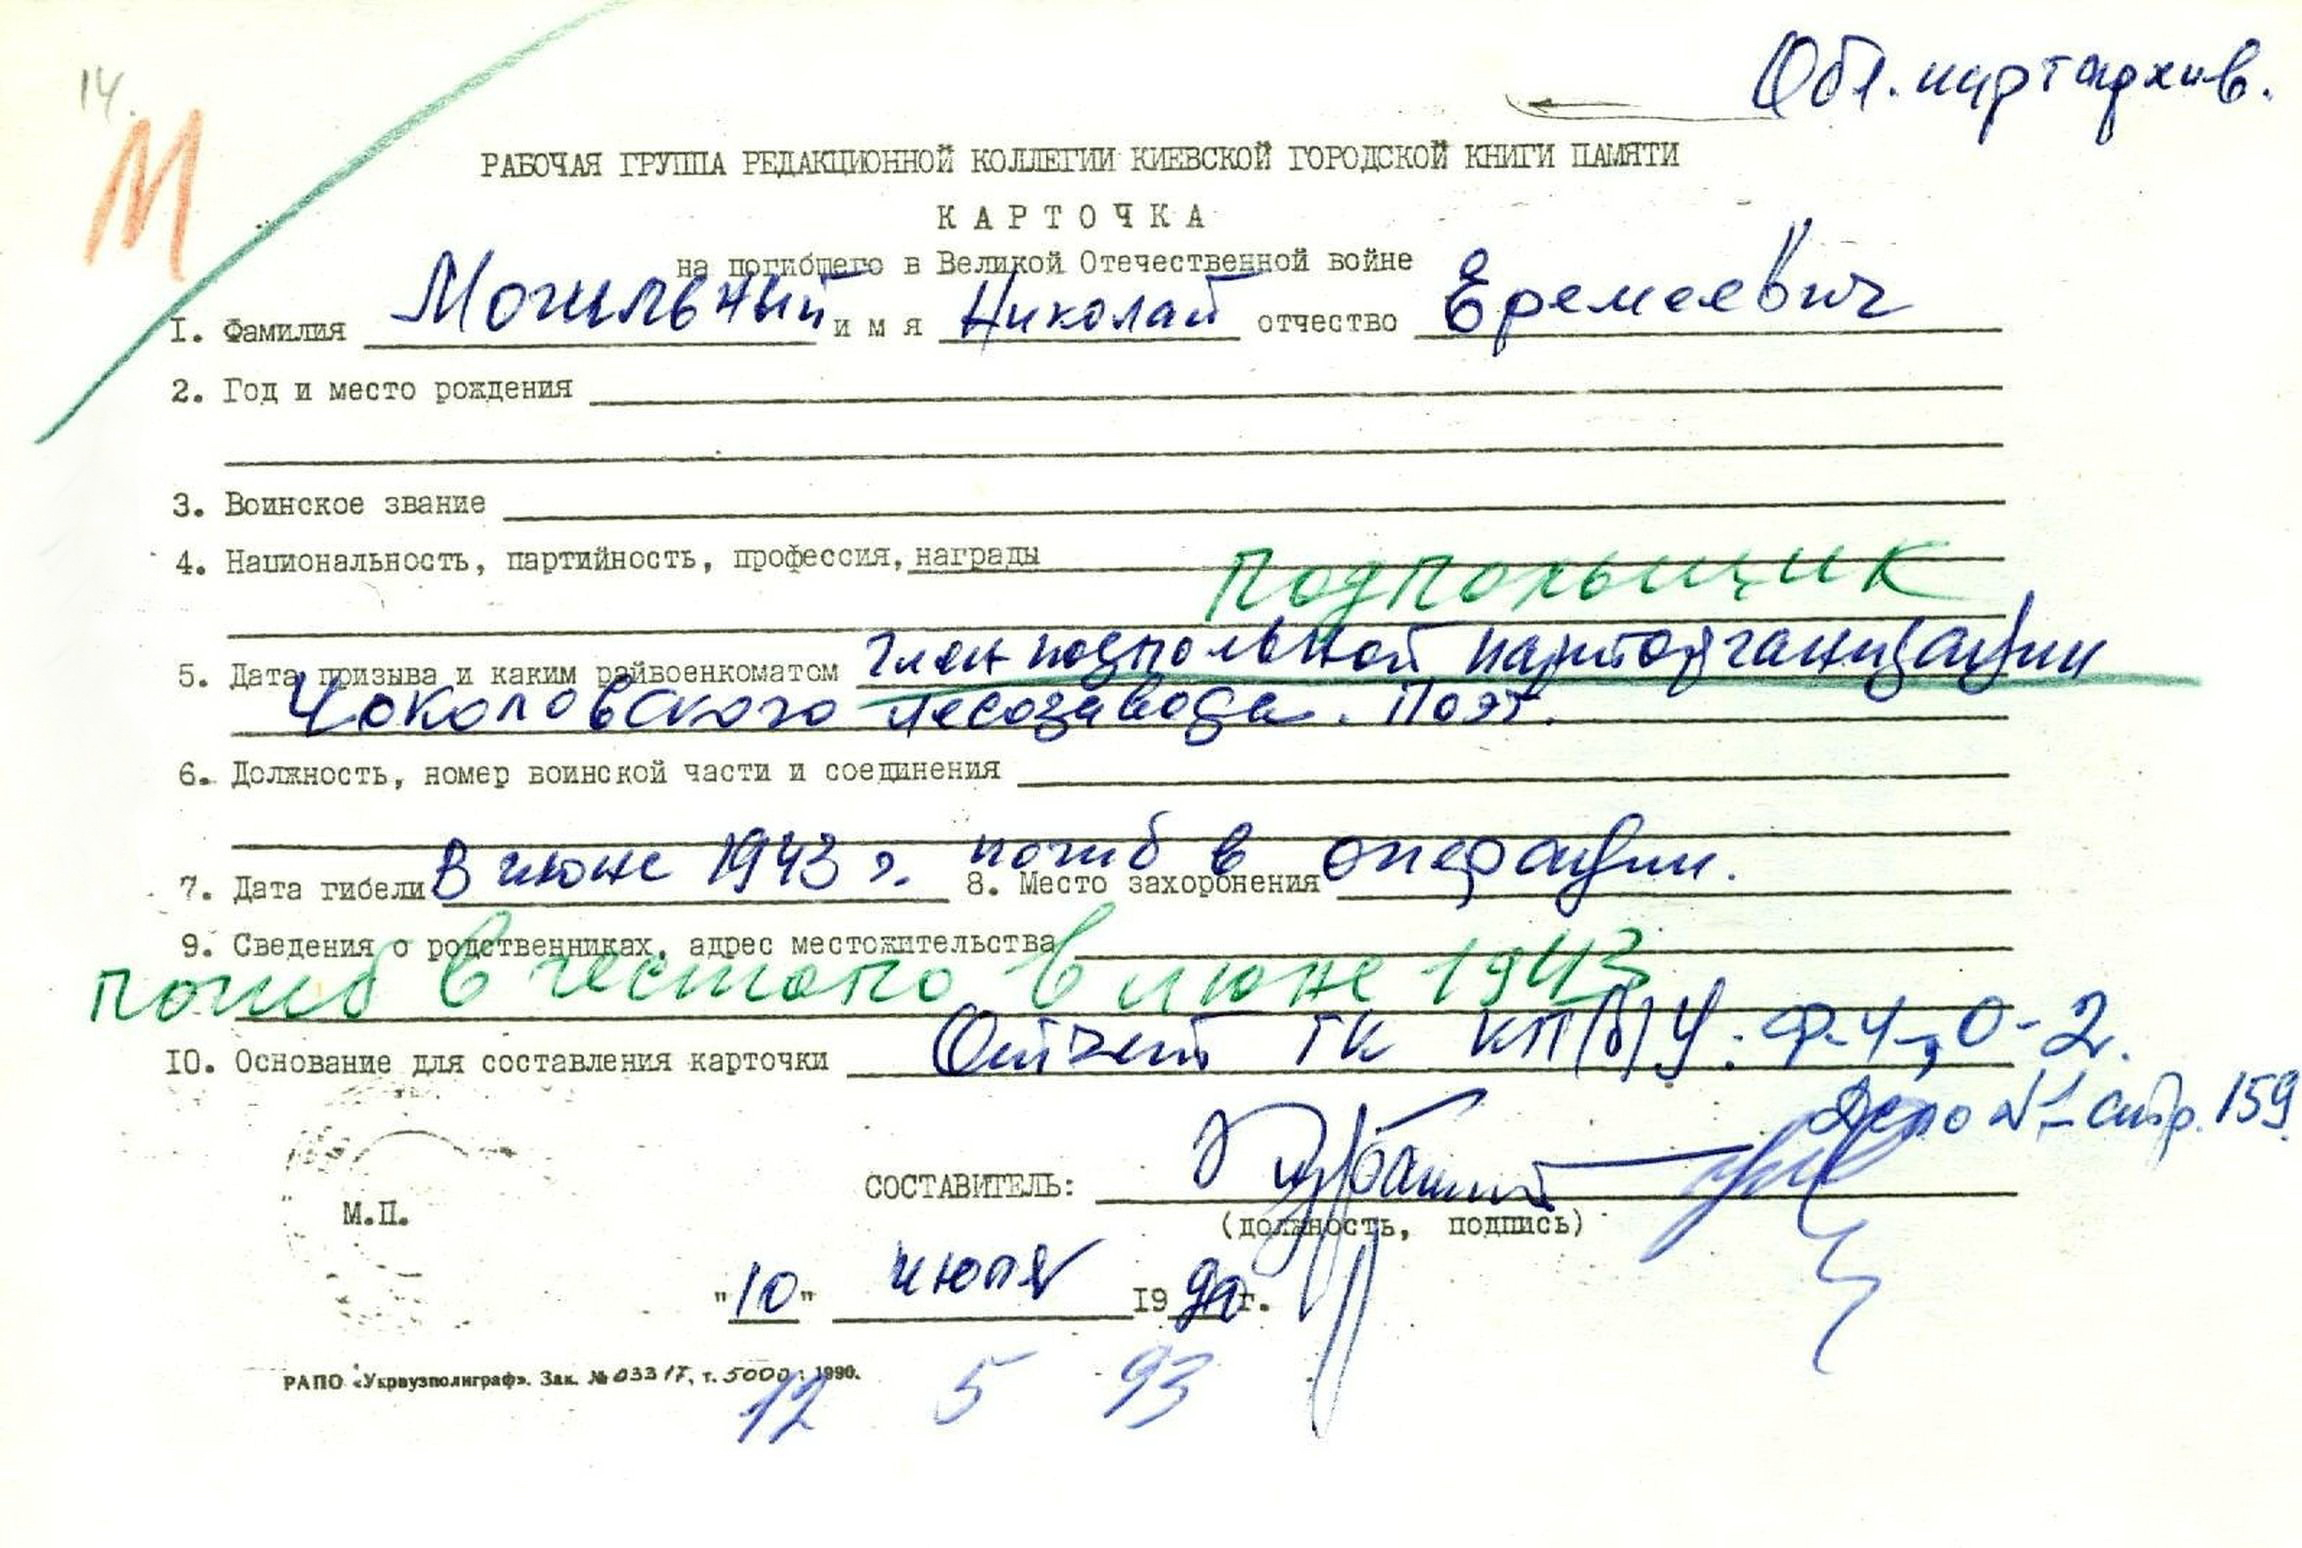 14.
Обл. партархив.
М
РАБОЧАЯ ГРУППА РЕДАКЦИОННОЙ КОЛЛЕГИИ КИЕВСКОЙ ГОРОДСКОЙ КНИГИ ПАМЯТИ
КАРТОЧКА
на погибшего в Великой Отечественной войне
I. Фамилия Могильный имя Николай отчество Еремеевич
2. Год и место рождения
3. Воинское звание
4. Национальность, партийность, профессия, награды
подпольщик
5. Дата призыва и каким райвоенкоматом член подпольной парторганизации
Чоколовского лесозавода. Поэт.
6. Должность, номер воинской части и соединения
7. Дата гибели В июне 1943 г. погиб в 8. Место захоронения операции.
9. Сведения о родственниках, адрес местожительства
погиб в гестапо в июне 1943
10. Основание для составления карточки Отчет ГК КП(б)У: Ф-4, О-2.
Дело №1 стр. 159.
СОСТАВИТЕЛЬ:
(должность, подпись)
М.П.
"10" июля 1990г.
РАПО «Укрвузполиграф». Зак. № 03317, т. 5000: 1990.
12 5 93